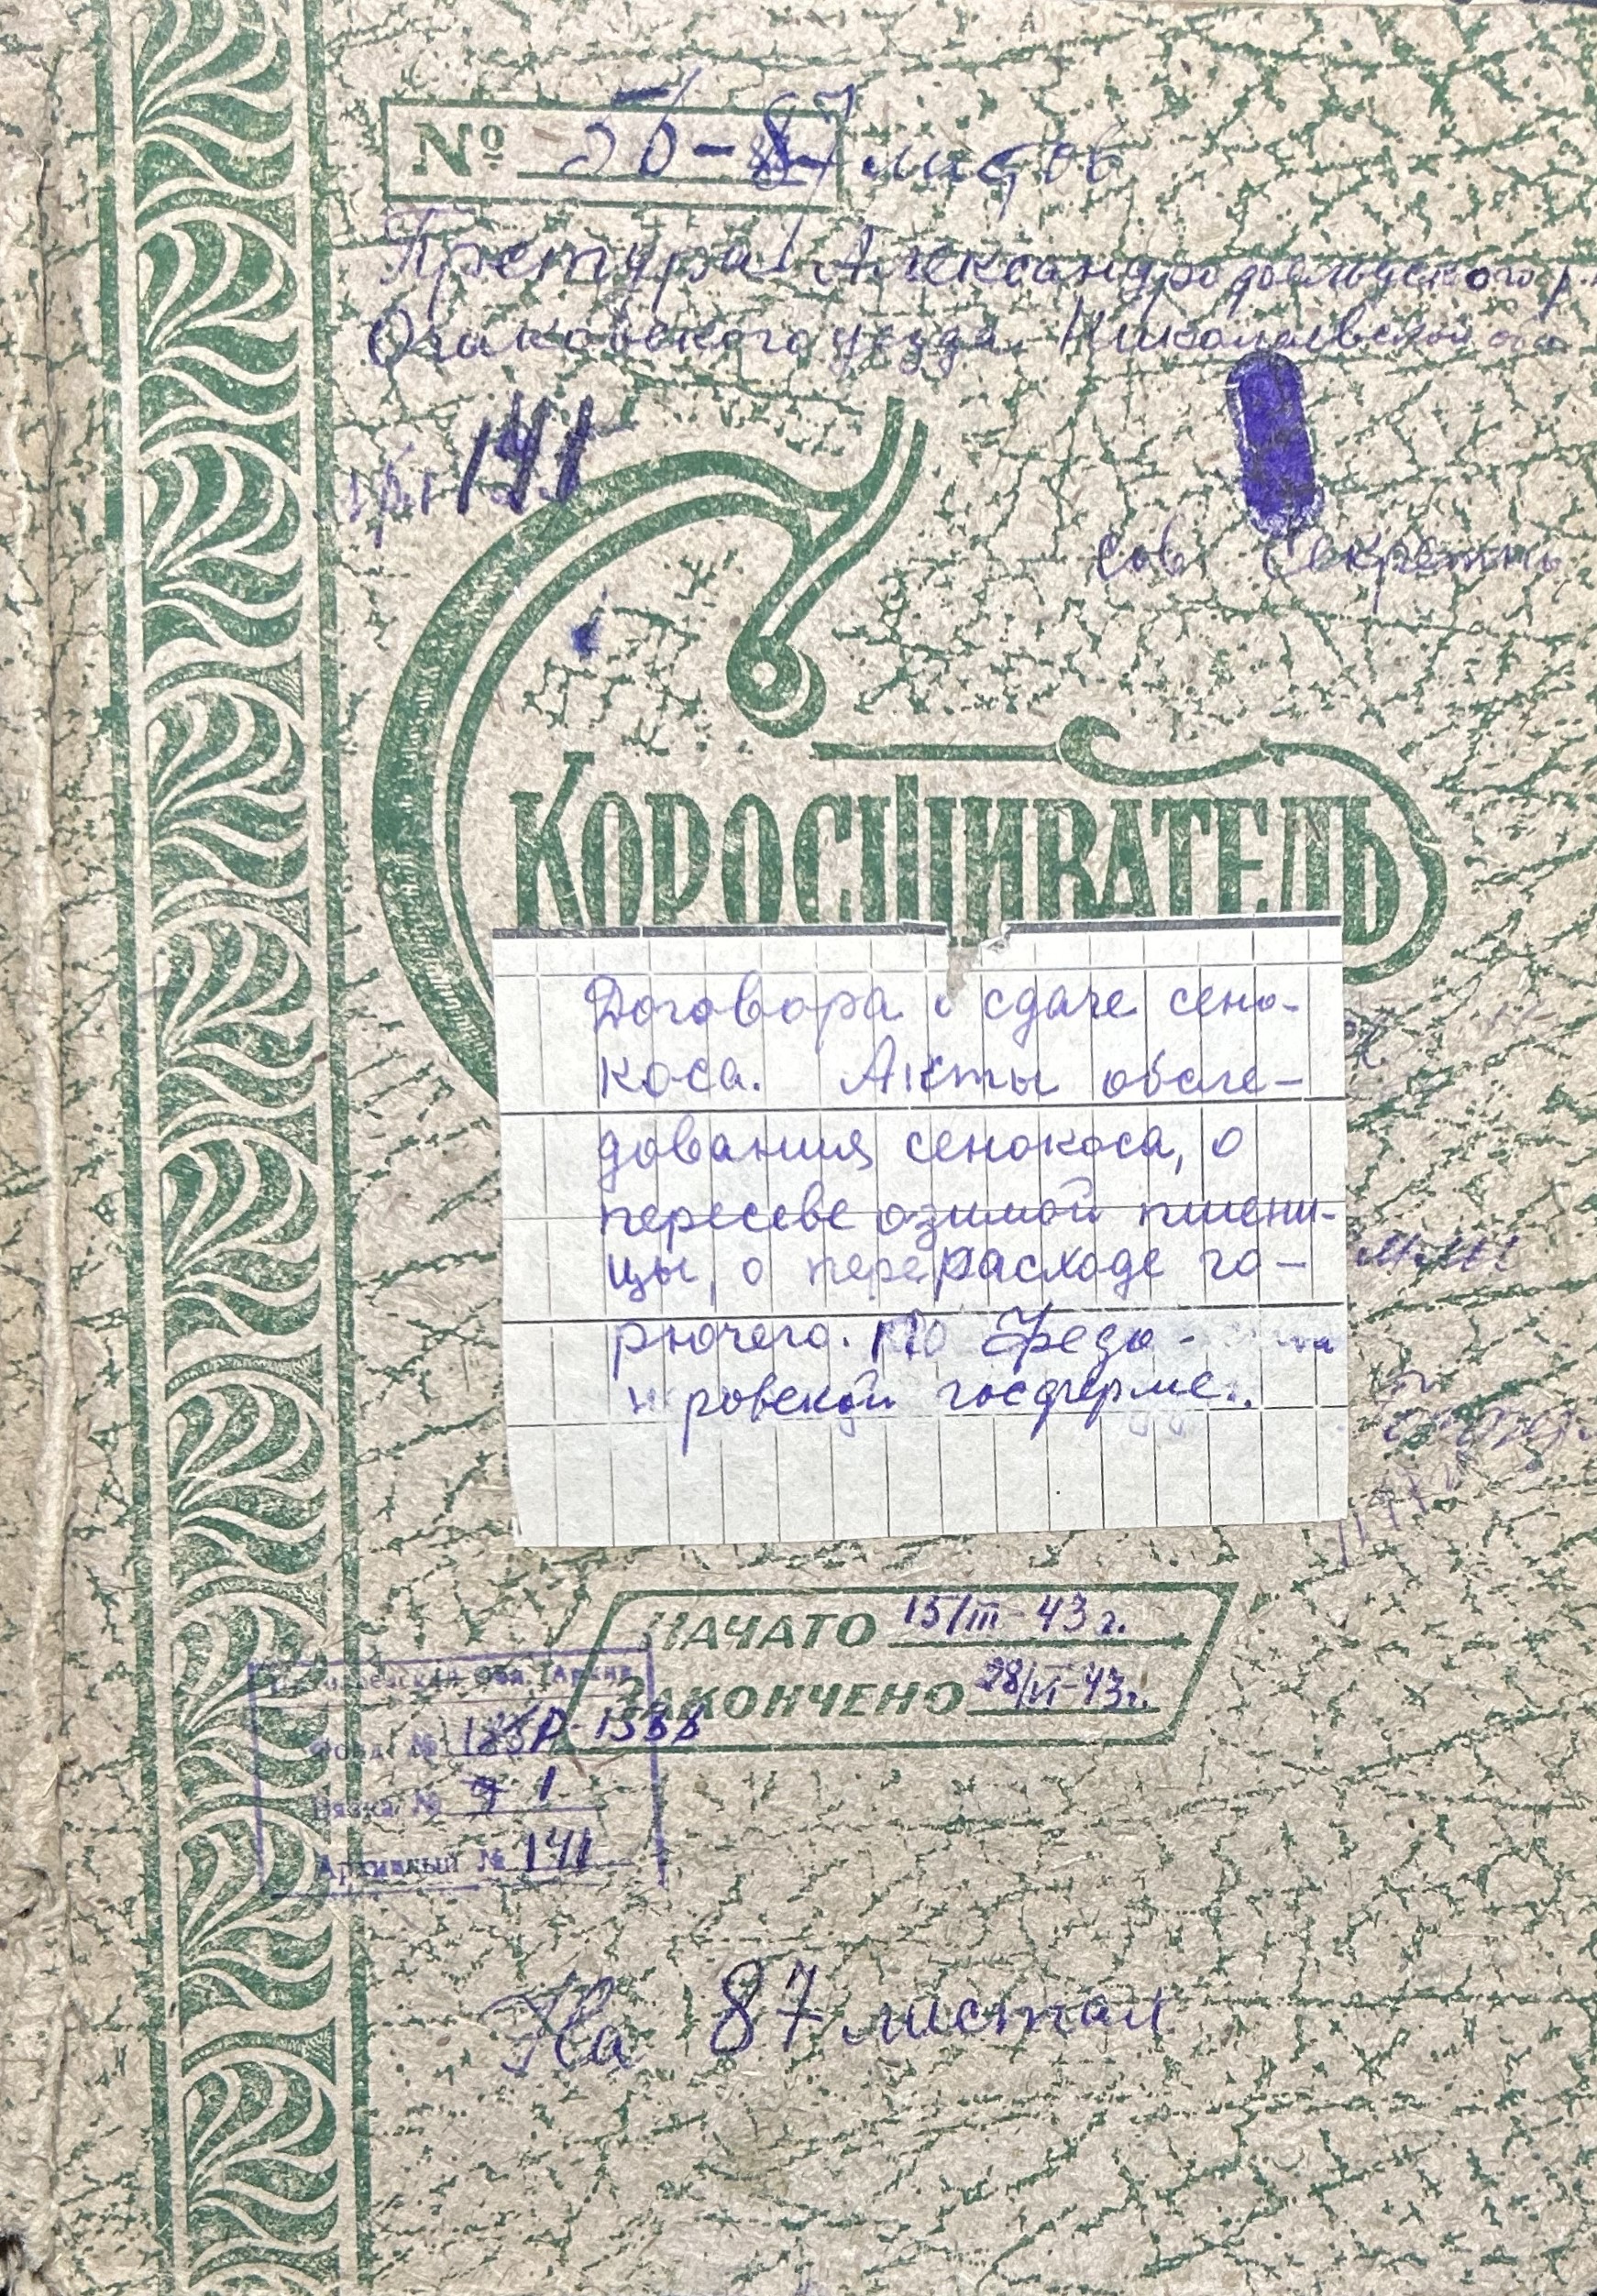 № 56-87 листов
Претура Александродовльдского р.
Очаковского уезда Николаевской обл
141
сов. Секретно
Скоросшиватель
Договора о сдаче сено-
коса. Акты обсле-
дования сенокоса, о
пересеве озимой пшени-
цы, о перерасходе го-
рючего. по Федо-
ровской госферме.
НАЧАТО 15/III-43 г.
ЗАКОНЧЕНО 28/VI-43 г.
Николаевский Обл. Архив
Фонд № Р-1388
Вязка № 1
Архивный № 141
На 87 листах